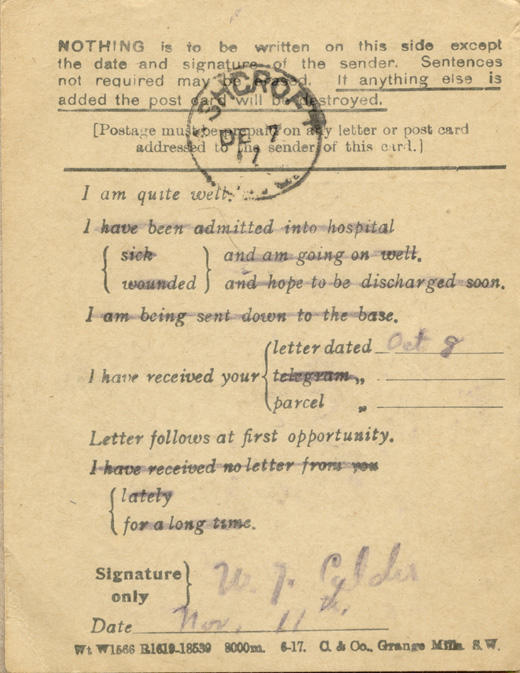 NOTHING is to be written on this side except
the date and signature of the sender. Sentences
not required may be erased. If anything else is
added the post card will be destroyed.
[Postage must be prepaid on any letter or post card
addressed to the sender of this card.]
ASHCROFT
DE 7
17
I am quite well.
I have been admitted into hospital
sick
and am going on well.
wounded
and hope to be discharged soon.
I am being sent down to the base.
letter dated Oct 8
I have received your
telegram „
parcel „
Letter follows at first opportunity.
I have received no letter from you
lately
for a long time.
Signature
only
W. J.
Date Nov. 11th.
Wt W1566 R1619-18539 8000m. 6-17. C. & Co., Grange Mills. S.W.